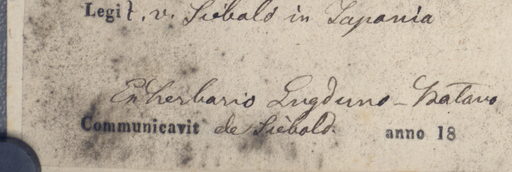 Legit. v. Siebold in Japania
Ex herbario Lugduno-Batavo
Communicavit de Siebold. anno 18